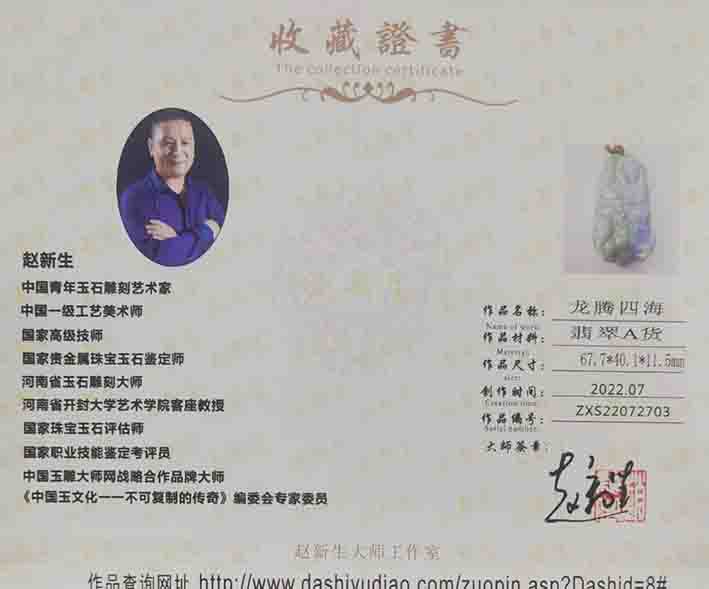 收藏證書
The collection certificate
赵新生
中国青年玉石雕刻艺术家
中国一级工艺美术师
国家高级技师
国家贵金属珠宝玉石鉴定师
河南省玉石雕刻大师
河南省开封大学艺术学院客座教授
国家珠宝玉石评估师
国家职业技能鉴定考评员
中国玉雕大师网战略合作品牌大师
《中国玉文化一一不可复制的传奇》编委会专家委员
作品名称: 龙腾四海
Name of work:
作品材料: 翡翠A货
Material:
作品尺寸: 67.7*40.1*11.5mm
size:
创作时间: 2022.07
Creation time:
作品编号: ZXS22072703
Serial number:
大师签章:
赵新生
赵新生大师工作室
作品查询网址 http://www.dashiyudiao.com/zuopin.asp?Dashid=8#